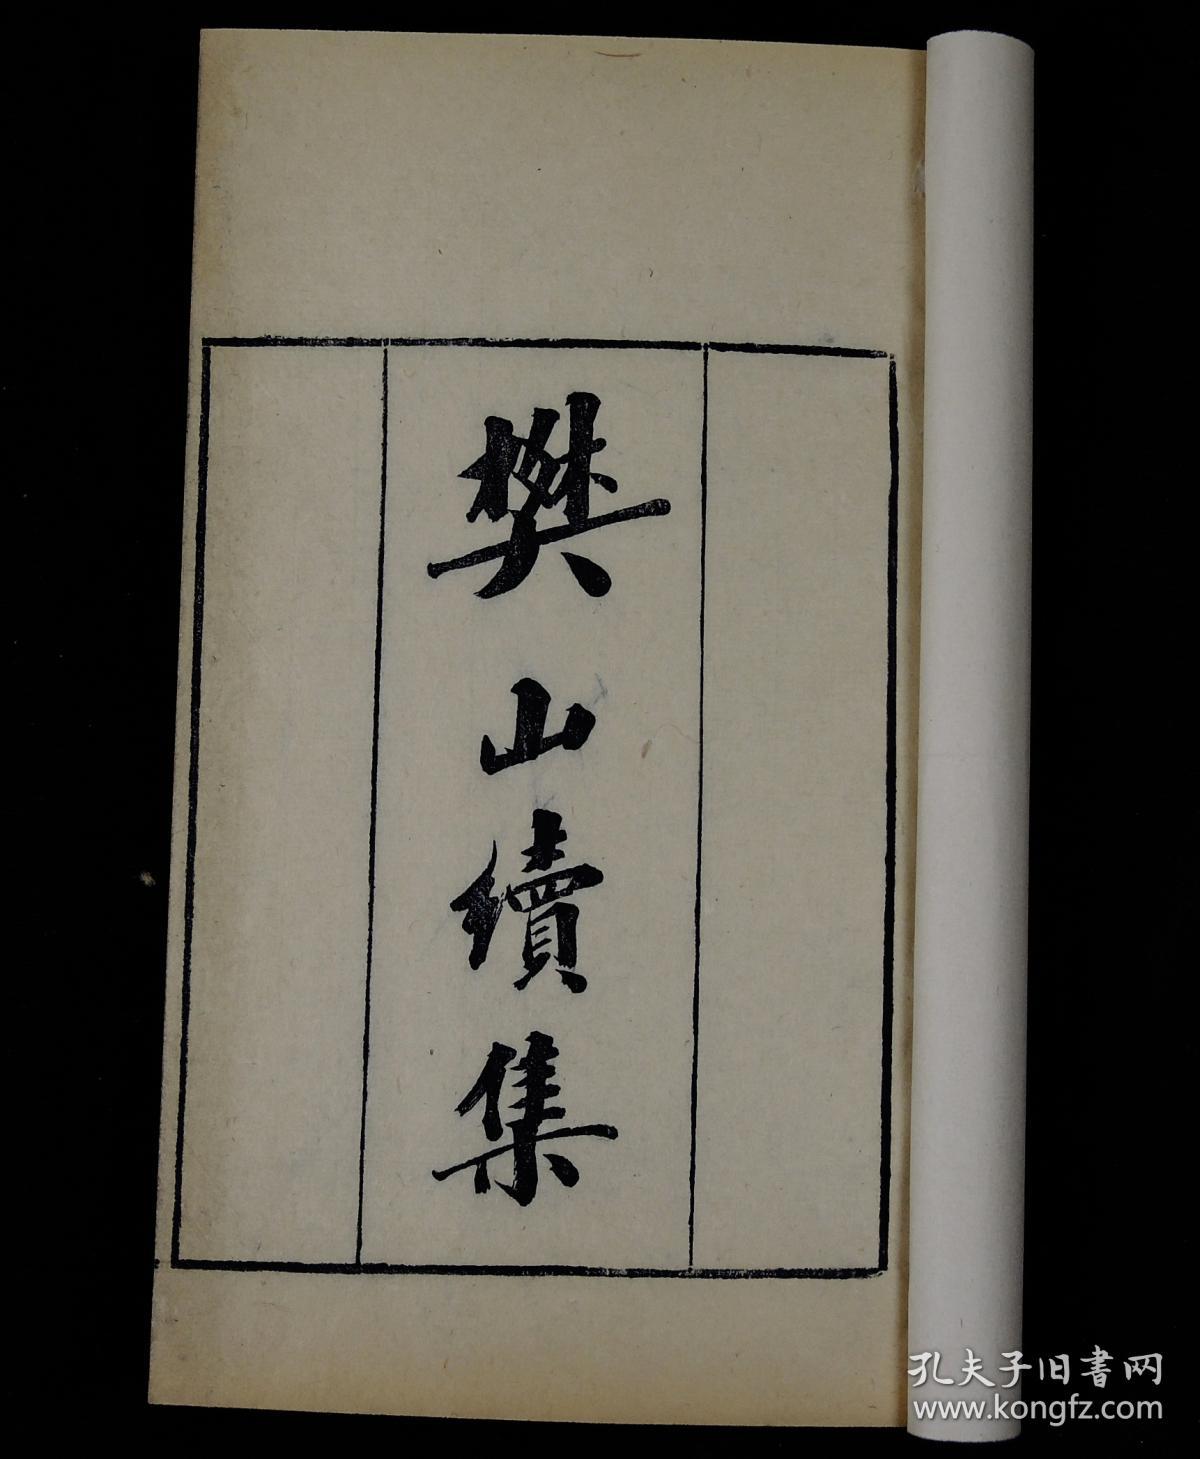 樊山續集
孔夫子旧書网
www.kongfz.com